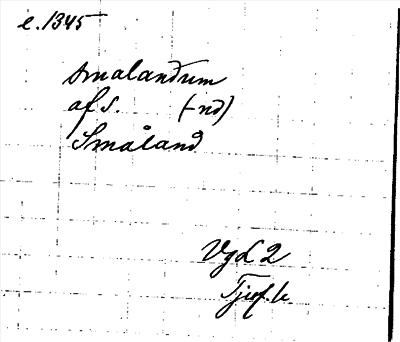 e. 1345
smalandum
af s. (-nd)
Småland
Vgd 2
Tjuf. b